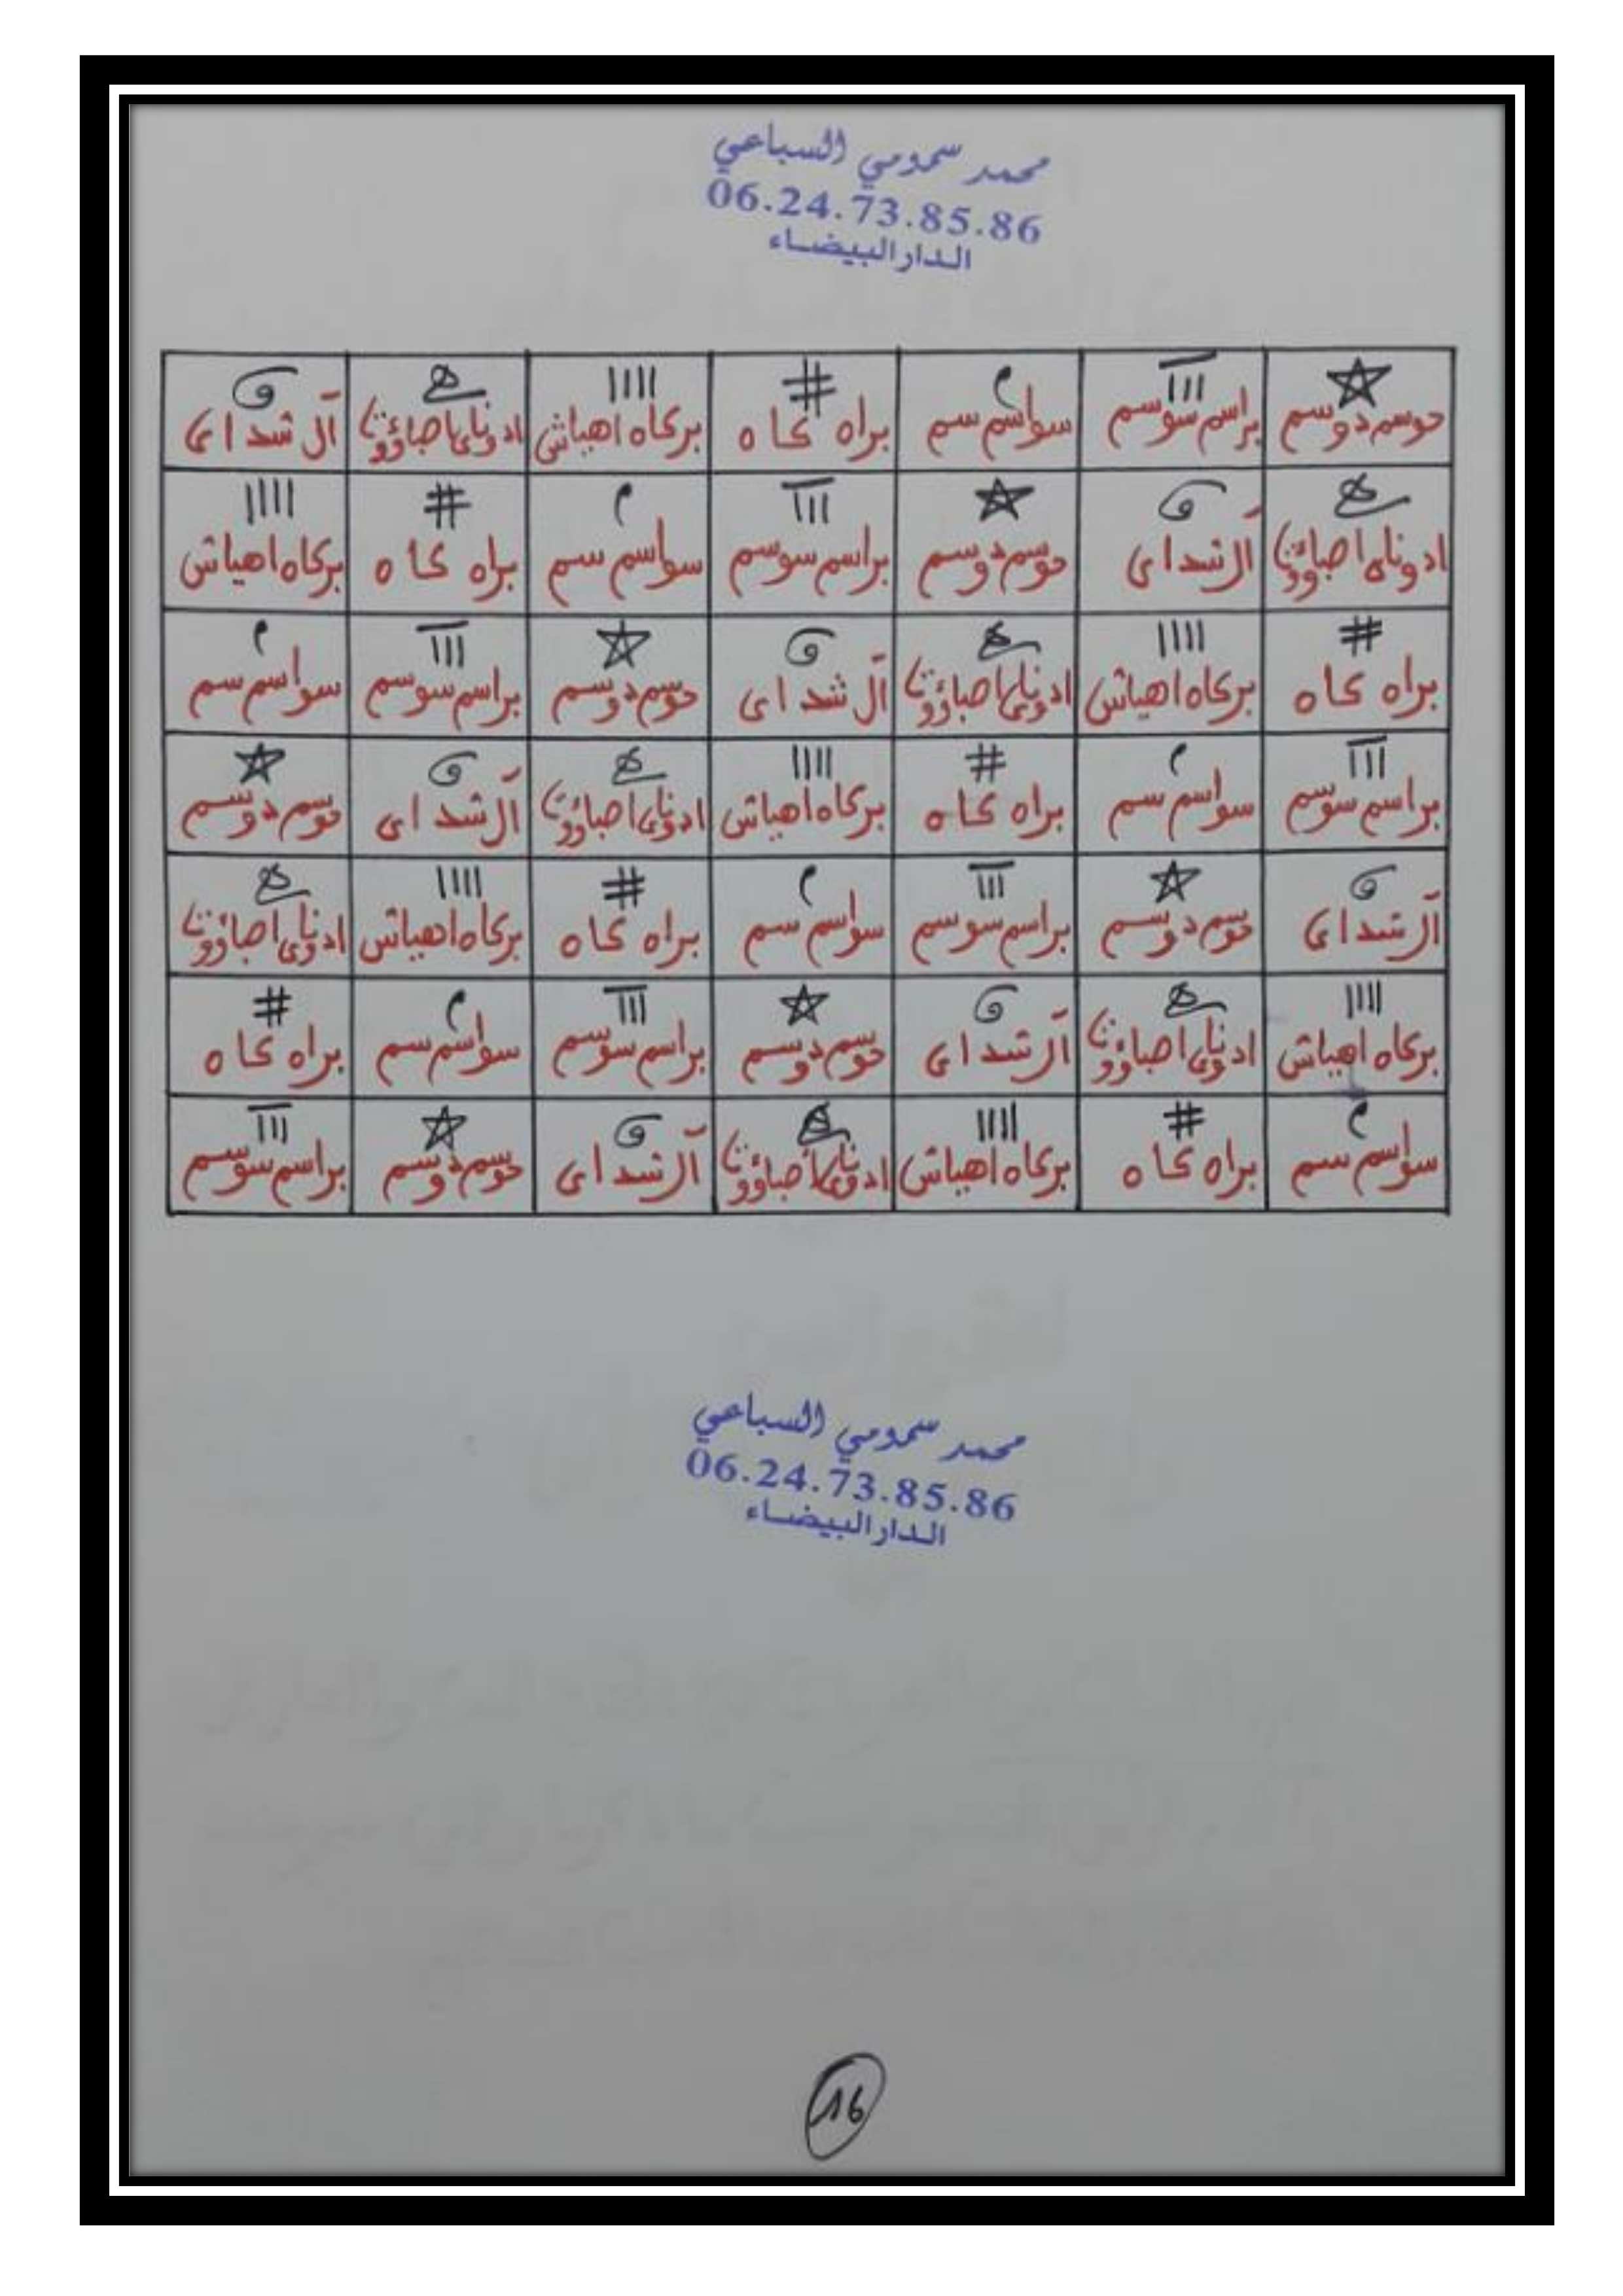 محمد سمومي السباعي
06.24.73.85.86
الدار البيضاء
دوسم دوسم براسم سوسم سواسم سم براه كاه بركاه اهياش ادوناى اصباؤوت آل شداى
ادوناى اصباؤوت آل شداى دوسم دوسم براسم سوسم سواسم سم براه كاه بركاه اهياش
براه كاه بركاه اهياش ادوناى اصباؤوت آل شداى دوسم دوسم براسم سوسم سواسم سم
براسم سوسم سواسم سم براه كاه بركاه اهياش ادوناى اصباؤوت آل شداى دوسم دوسم
آل شداى دوسم دوسم براسم سوسم سواسم سم براه كاه بركاه اهياش ادوناى اصباؤوت
بركاه اهياش ادوناى اصباؤوت آل شداى دوسم دوسم براسم سوسم سواسم سم براه كاه
سواسم سم براه كاه بركاه اهياش ادوناى اصباؤوت آل شداى دوسم دوسم براسم سوسم
محمد سمومي السباعي
06.24.73.85.86
الدار البيضاء
16